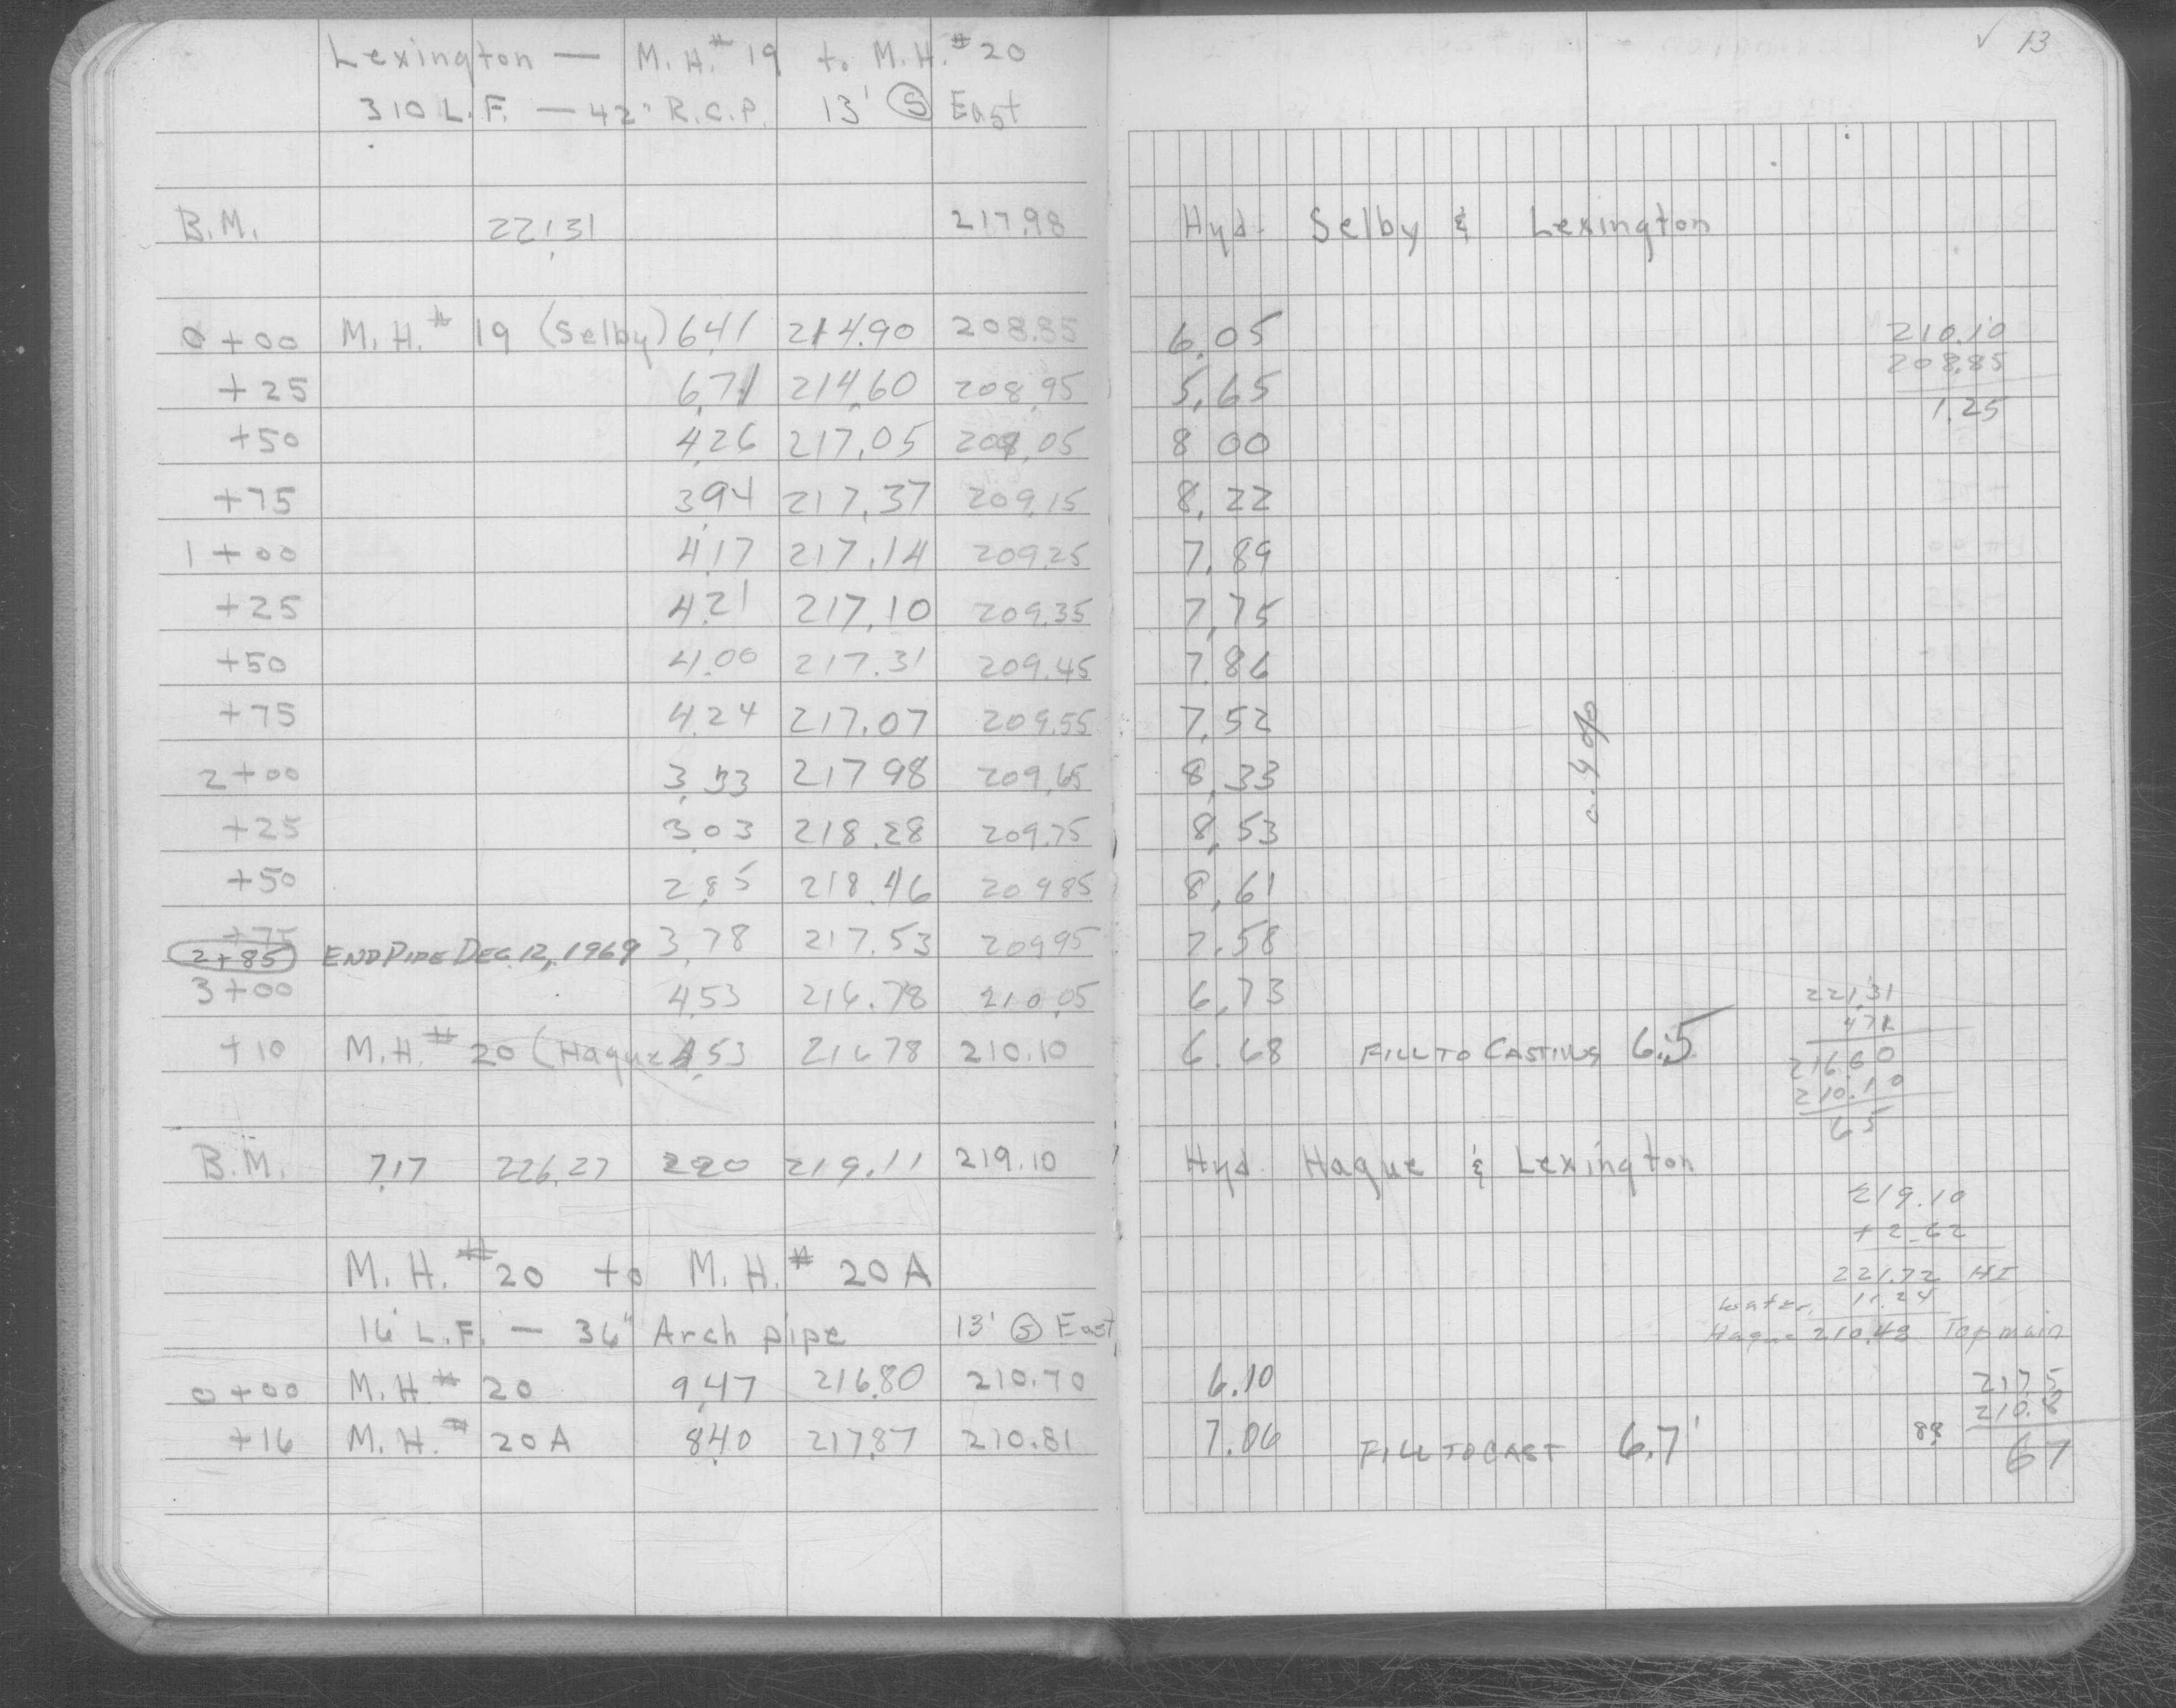 Lexington — M.H.# 19 to M.H.# 20
310 L.F. — 42" R.C.P. 13' Ⓢ East
B.M. 221.31 217.98
0+00 M.H.# 19 (Selby) 6.41 214.90 208.85
+25 6.71 214.60 208.95
+50 4.26 217.05 209.05
+75 3.94 217.37 209.15
1+00 4.17 217.14 209.25
+25 4.21 217.10 209.35
+50 4.00 217.31 209.45
+75 4.24 217.07 209.55
2+00 3.33 217 98 209.65
+25 3.03 218.28 209.75
+50 2.85 218.46 209 85
+75 3.78 217.53 209 95
2+85 END PIPE DEC. 12, 1969
3+00 4.53 216.78 210.05
+10 M.H.# 20 (Hague) 4.53 216 78 210.10
B.M. 7.17 226.27 2.20 219.11 219.10
M.H.# 20 to M.H.# 20A
16 L.F. — 36" Arch pipe 13' Ⓢ East
0+00 M.H.# 20 9.47 216.80 210.70
+16 M.H.# 20A 8.40 217.87 210.81
✓ 13
Hyd. Selby & Lexington
6.05 210.10
208.85
5.65 1.25
8 00
8.22
7.89
7.75
7.86
7.52
0.4%
8.33
8.53
8.61
7.58
6.73 221.31
4 71
6.68 FILL TO CASTING 6.5 216.60
210.10
6 5
Hyd. Hague & Lexington
219.10
+ 2.62
221.72 HI
Water 11.24
Hague 210.48 Top main
6.10 217 5
210.8
7.06 FILL TO CAST 6.7' 88 6 7